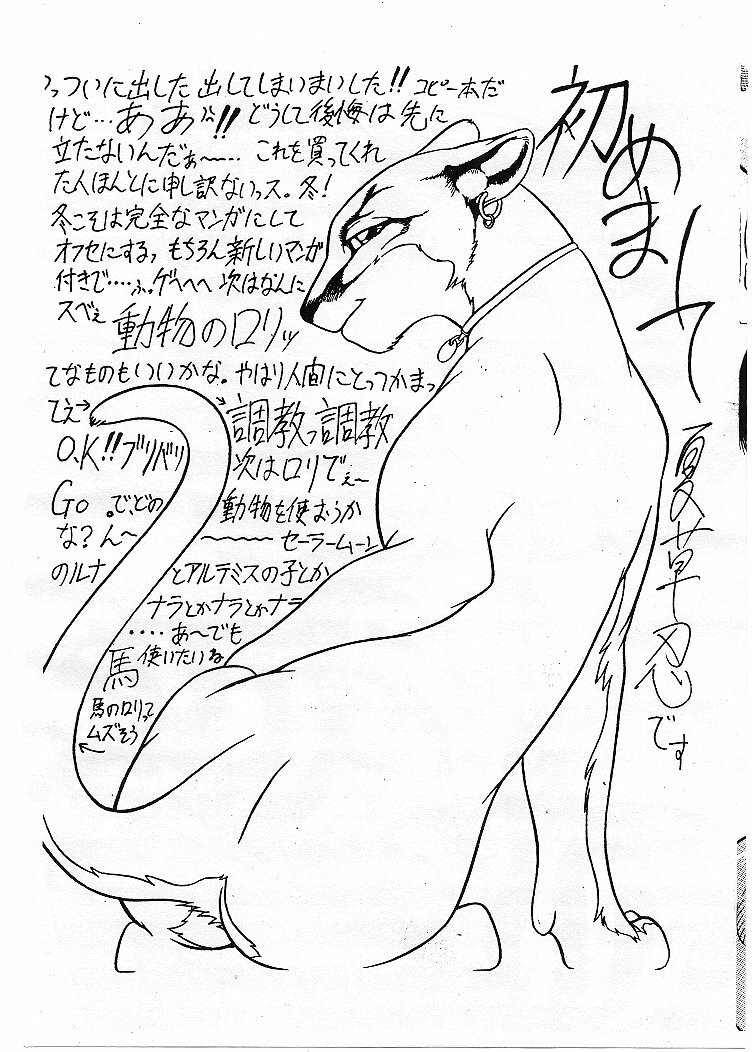 初めまして
夏草忍です
ついに出した 出してしまいまいした!! コピー本だ
けど…ああ!! どうして後悔は先に
立たないんだぁ〜… これを買ってくれ
た人ほんとに申し訳ないっス。冬!
冬こそは完全なマンガにして
オフセにするっ もちろん新しいマンガ
付きで…‥ふっゲヘヘヘ 次はなんに
スべぇ
動物のロリッ
てなものもいいかな。やはり人間にとっつかまっ
てえ→
調教っ調教
O.K!!ブリバリ
次はロリでぇ〜
Go。でどの
動物を使おうか
な?ん〜
〜〜〜 セーラームーン
のルナ とアルテミスの子とか
ナラとかナラとかナラ
‥‥あ〜でも
馬 使いたいな
馬のロリって
ムズそう
←